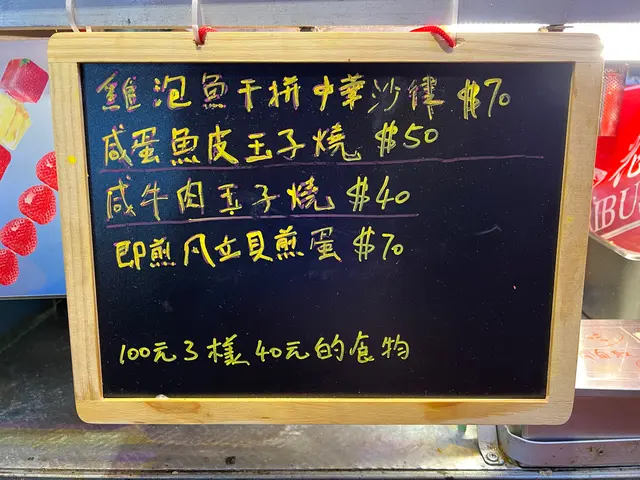 雞泡魚干拼中華沙律 $70
咸蛋魚皮玉子燒 $50
咸牛肉玉子燒 $40
即煎风立貝煎蛋 $70
100元3樣40元的食物
IBUS